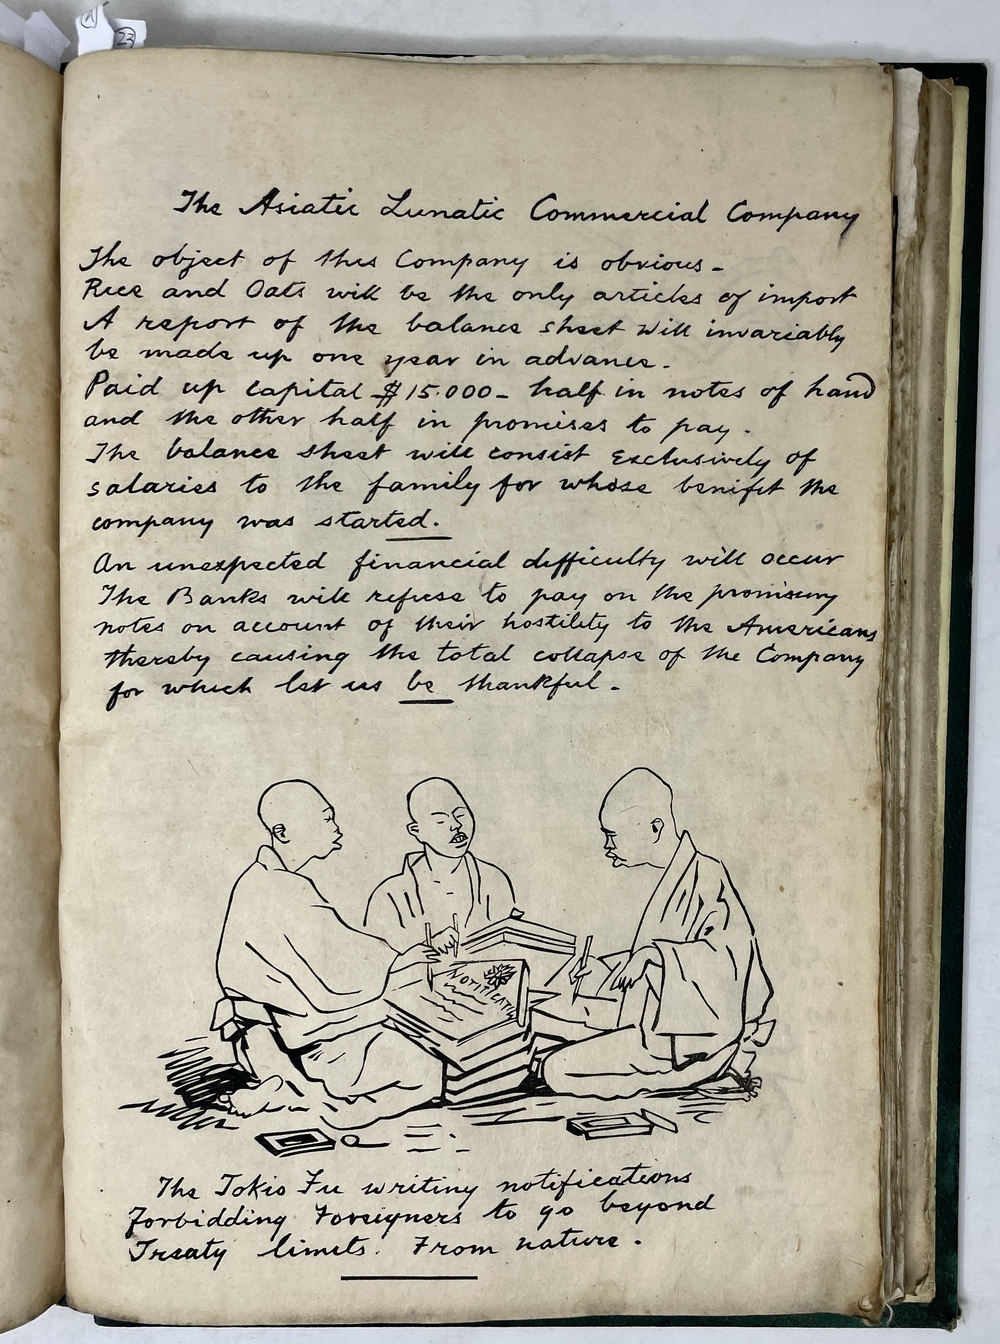 23
The Asiatic Lunatic Commercial Company
The object of this Company is obvious -
Rice and Oats will be the only articles of import
A report of the balance sheet will invariably
be made up one year in advance -
Paid up capital $15.000 - half in notes of hand
and the other half in promises to pay -
The balance sheet will consist exclusively of
salaries to the family for whose benifit the
company was started.
An unexpected financial difficulty will occur
The Banks will refuse to pay on the promissory
notes on account of their hostility to the Americans
thereby causing the total collapse of the Company
for which let us be thankful -
NOTIFICATION
The Tokio Fu writing notifications
Forbidding Foreigners to go beyond
Treaty limits. From nature -